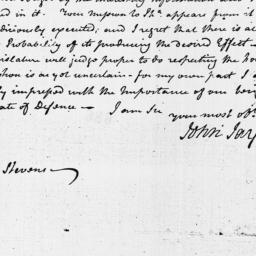 by the
in it. Your mission to Pha. appears from it
diciously executed, and I regret that there is al
Probability of its producing the desired Effect—
gislature will judge proper to do respecting the
is as yet uncertain— for my own part I a
ly impressed with the Importance of our being
ate of Defence— I am Sir
your most obt.
John Jay
Stevens—